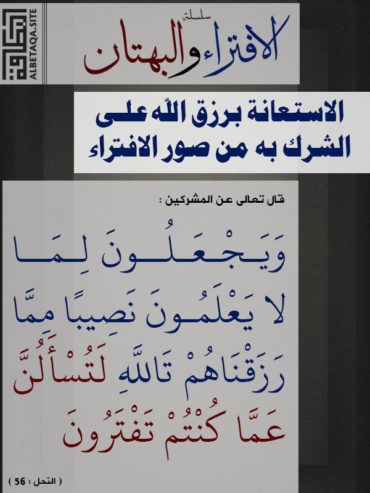 سلسلة
الافتراء والبهتان
ALBETAQA.SITE
البطاقة
الاستعانة برزق الله على
الشرك به من صور الافتراء
قال تعالى عن المشركين :
وَيَجْعَلُونَ لِمَا
لا يَعْلَمُونَ نَصِيبًا مِمَّا
رَزَقْنَاهُمْ تَاللَّهِ لَتُسْأَلُنَّ
عَمَّا كُنْتُمْ تَفْتَرُونَ
( النحل : 56 )